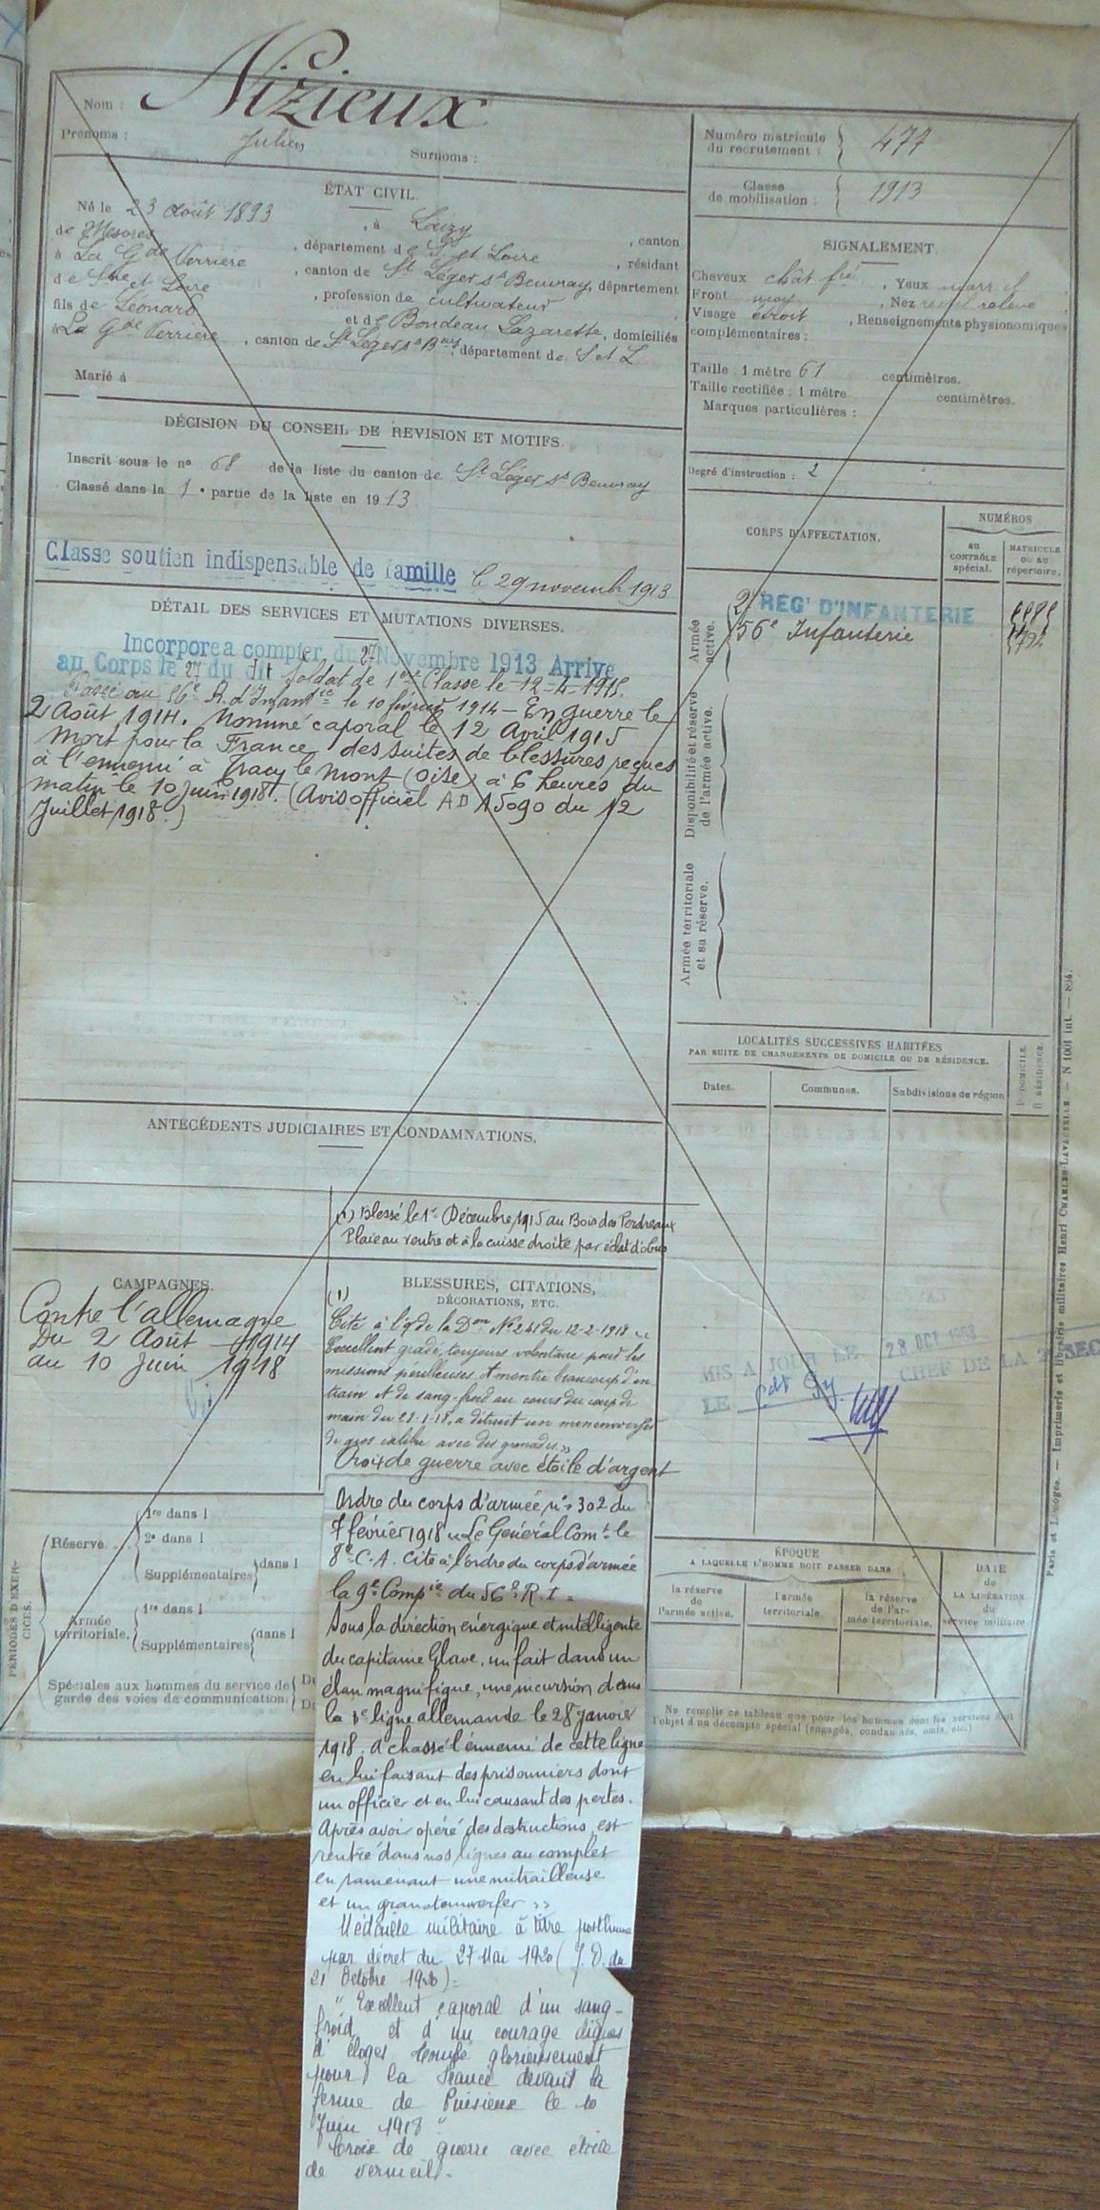 Nom : Nizieux
Prénoms : Julien Surnoms :
ÉTAT CIVIL.
Né le 23 août 1893, à Luzy, canton
de Mesvres, département de S. et Loire, résidant
à La Gde Verrière, canton de St Léger s/s Beuvray, département
de Sne et Loire, profession de cultivateur
fils de Léonard et de Bondeau Lazarette, domiciliés
à La Gde Verrière, canton de St Léger s/s Bray, département de S et L
Marié à
DÉCISION DU CONSEIL DE REVISION ET MOTIFS.
Inscrit sous le no 68 de la liste du canton de St Léger s/s Beuvray
Classé dans la 1e partie de la liste en 1913
Classe soutien indispensable de famille le 29 novembre 1913
DÉTAIL DES SERVICES ET MUTATIONS DIVERSES.
Incorpore a compter du 27 Novembre 1913 Arrive
au Corps le 27 du dit Soldat de 1ere Classe le 12-4-1915.
Passé au 56e R. d'Infantie le 10 février 1914 – En guerre le
2 Août 1914. Nommé caporal le 12 Avril 1915
Mort pour la France des suites de blessures reçues
à l'ennemi à Tracy le Mont (Oise) à 6 heures du
matin le 10 juin 1918. (Avis officiel AD 15090 du 12
Juillet 1918.)
ANTÉCÉDENTS JUDICIAIRES ET CONDAMNATIONS.
(1) Blessé le 1er Décembre 1915 au Bois des Perdreaux
Plaie au ventre et à la cuisse droite par éclat d'obus
CAMPAGNES.
Contre l'allemagne
Du 2 Août 1914
au 10 Juin 1918
BLESSURES, CITATIONS,
DÉCORATIONS, ETC.
(1)
Cité à l'o/ de la Don No 241 du 12-2-1918 «
Excellent gradé, toujours volontaire pour les
missions périlleuses. A montré beaucoup d'en
train et de sang-froid au cours du coup de
main du 28-1-18, a détruit un minenwerfer
de gros calibre avec des grenades »
Croix de guerre avec étoile d'argent
Ordre du corps d'armée no 302 du
7 février 1918 « Le Général Comt le
8e C.A. cite à l'ordre du corps d'armée
la 9e Compie du 56e R.I. =
Sous la direction énergique et intelligente
du capitaine Glave, un fait dans un
élan magnifique, une incursion dans
la 1e ligne allemande le 28 janvier
1918. A chassé l'ennemi de cette ligne
en lui faisant des prisonniers dont
un officier et en lui causant des pertes.
Après avoir opéré des destructions, est
rentré dans nos lignes au complet
en ramenant une mitrailleuse
et un granatenwerfer »
Médaille militaire à titre posthume
par décret du 27 Mai 1920 (J.O. du
21 Octobre 1920) =
" Excellent caporal d'un sang-
froid et d'un courage dignes
d'éloges tombé glorieusement
pour la France devant la
ferme de Puisieux le 10
Juin 1918 "
Croix de guerre avec étoile
de vermeil.
PÉRIODES D'EXERCICES.
Réserve. 1re dans l
2e dans l
Supplémentaires dans l
Armée territoriale. 1re dans l
Supplémentaires dans l
Spéciales aux hommes du service de
garde des voies de communication.
Numéro matricule
du recrutement : 477
Classe
de mobilisation : 1913
SIGNALEMENT.
Cheveux chât fcé, Yeux marr
Front moy, Nez rect relevé
Visage étroit, Renseignements physionomiques
complémentaires :
Taille : 1 mètre 61 centimètres.
Taille rectifiée : 1 mètre centimètres.
Marques particulières :
Degré d'instruction : 2
CORPS D'AFFECTATION.
NUMÉROS
AU CONTRÔLE spécial.
MATRICULE OU AU répertoire.
Armée active.
REGt D'INFANTERIE
56e Infanterie
Disponibilité et réserve de l'armée active.
Armée territoriale et sa réserve.
LOCALITÉS SUCCESSIVES HABITÉES
PAR SUITE DE CHANGEMENTS DE DOMICILE OU DE RÉSIDENCE.
Dates. Communes. Subdivisions de région
D. DOMICILE R. RÉSIDENCE.
MIS A JOUR LE 28 OCT
LE CHEF DE LA SEC
ÉPOQUE
A LAQUELLE L'HOMME DOIT PASSER DANS
la réserve de l'armée active.
l'armée territoriale.
la réserve de l'armée territoriale.
DATE de LA LIBÉRATION du service militaire.
Ne remplir ce tableau que pour les hommes dont les services font
l'objet d'un décompte spécial (engagés, condamnés, omis, etc.)
Paris et Limoges. — Imprimerie et librairie militaires Henri CHARLES-LAVAUZELLE. — N 1001 int. — 894.